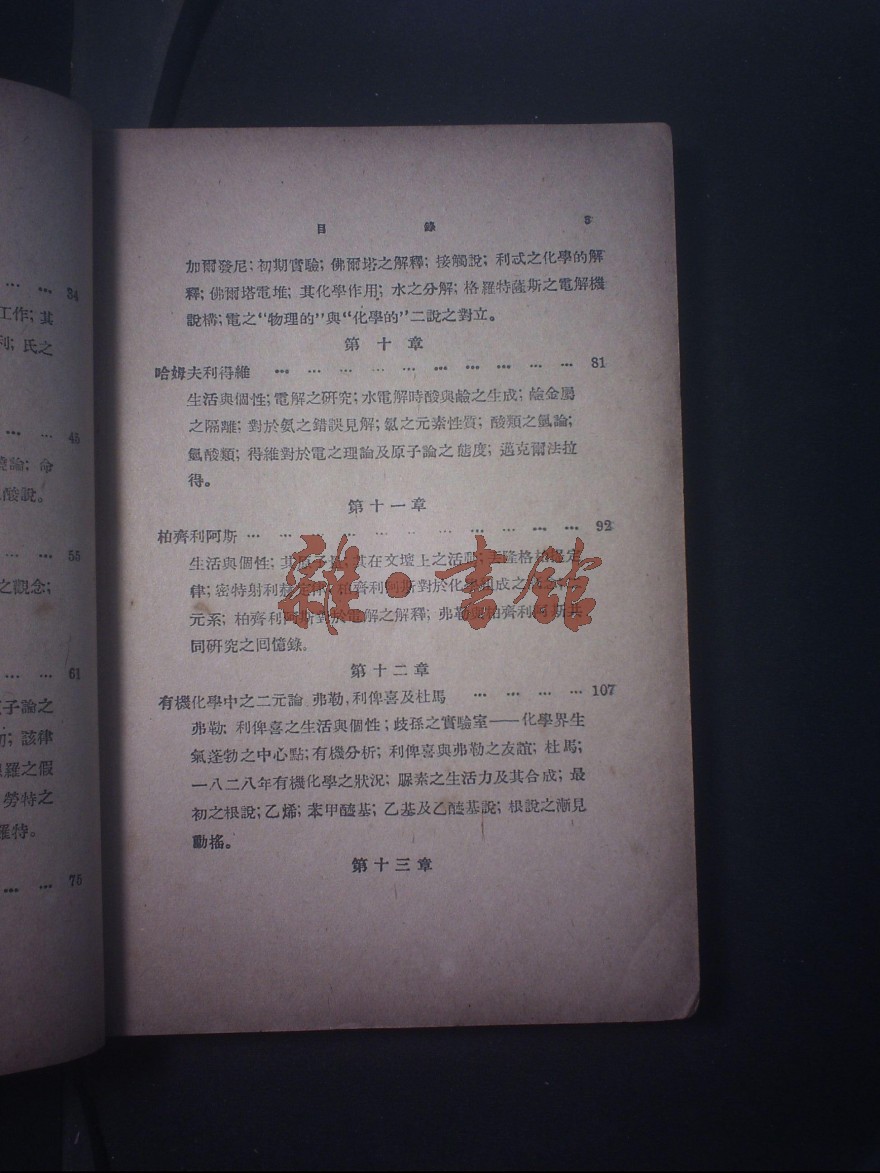 34
工作; 其
利; 氏之
45
論; 命
酸說。
55
之觀念;
61
子論之
該律
羅之假
勞特之
羅特。
75
目 錄 5
加爾發尼; 初期實驗; 佛爾塔之解釋; 接觸說; 利式之化學的解
釋; 佛爾塔電堆; 其化學作用; 水之分解; 格羅特薩斯之電解機
說構; 電之“物理的”與“化學的”二說之對立。
第十章
哈姆夫利得維 … … … … … … … … … … 81
生活與個性; 電解之研究; 水電解時酸與鹼之生成; 鹼金屬
之隔離; 對於氨之錯誤見解; 氯之元素性質; 酸類之氫論;
氫酸類; 得維對於電之理論及原子論之態度; 邁克爾法拉
得。
第十一章
柏齊利阿斯 … … … … … … … … … … … 92
生活與個性; 其原子量; 其在文壇上之活動; 定
律; 密特射利赫定律; 柏齊利阿斯對於化學組成之
元系; 柏齊利阿斯對於電解之解釋; 弗勒與柏齊利阿斯共
同研究之囘憶錄。
第十二章
有機化學中之二元論 弗勒, 利俾喜及杜馬 … … … … 107
弗勒; 利俾喜之生活與個性; 歧孫之實驗室——化學界生
氣蓬勃之中心點; 有機分析; 利俾喜與弗勒之友誼; 杜馬;
一八二八年有機化學之狀況; 脲素之生活力及其合成; 最
初之根說; 乙烯; 苯甲醯基; 乙基及乙醯基說; 根說之漸見
動搖。
第十三章
雜·書館